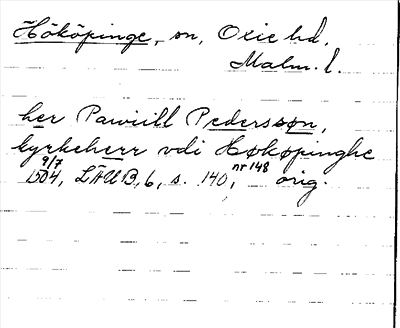 Hököpinge, sn, Oxie hd,
Malm. l.
her Pawiill Pederssøn,
kyrkeherr vdi Høkøpinghe
9/7 1504, LÄUB, 6, s. 140, nr 148 orig.